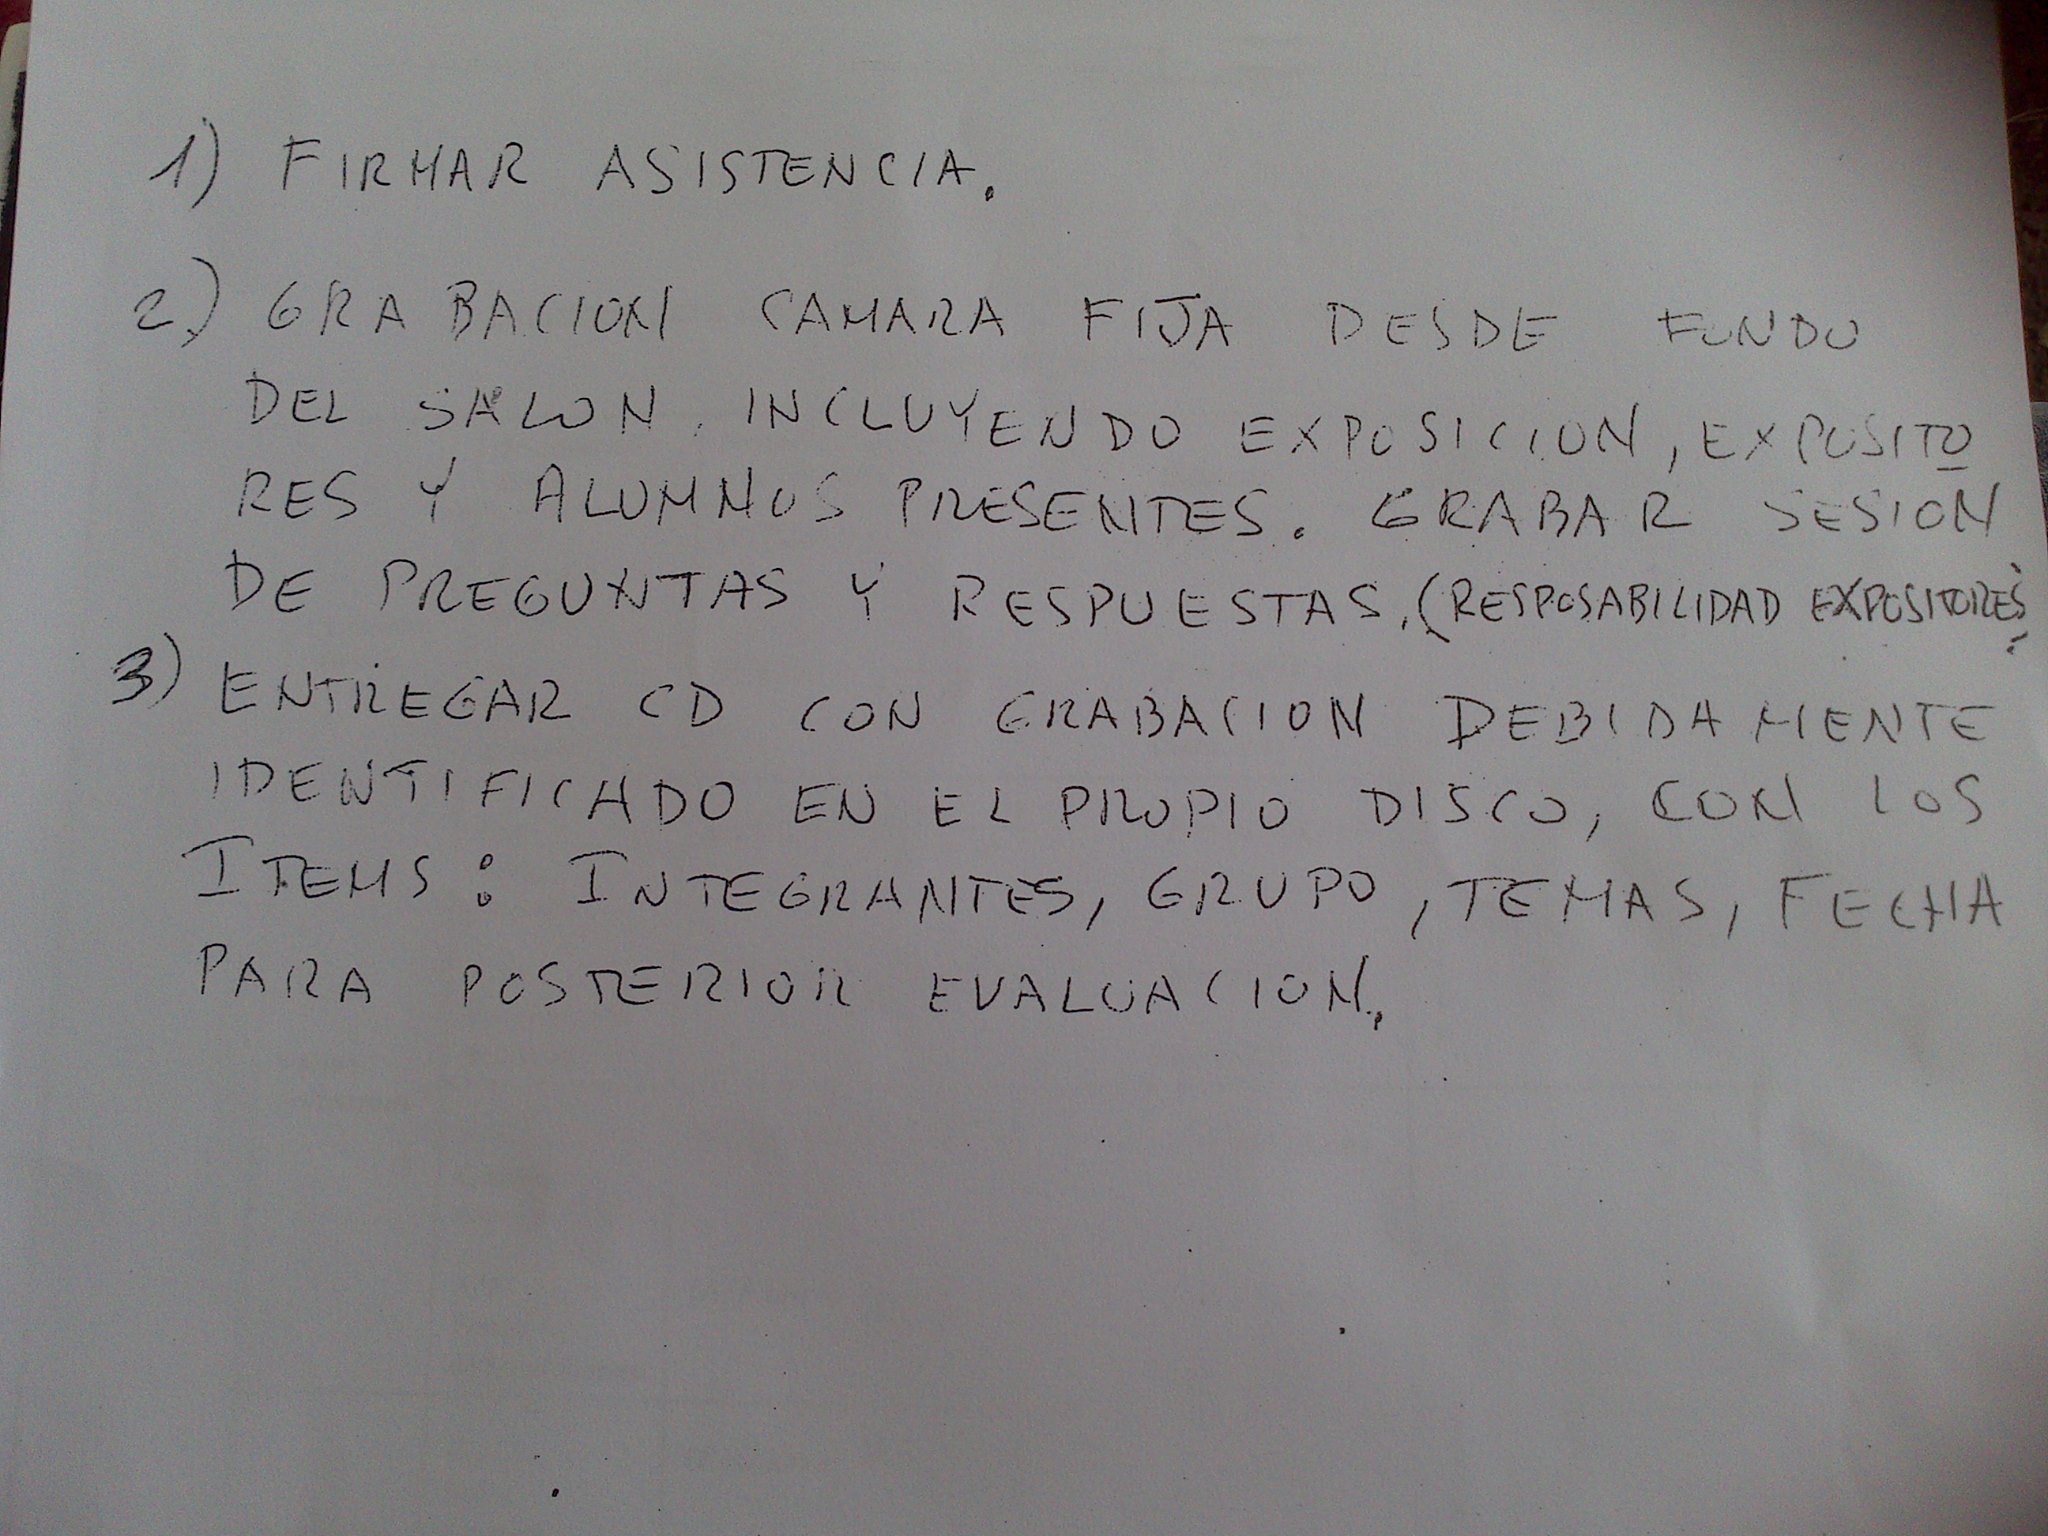 1) FIRMAR ASISTENCIA.
2) GRABACION CAMARA FIJA DESDE FONDO
DEL SALON. INCLUYENDO EXPOSICION, EXPOSITO
RES Y ALUMNOS PRESENTES. GRABAR SESION
DE PREGUNTAS Y RESPUESTAS. (RESPOSABILIDAD EXPOSITORES)
3) ENTREGAR CD CON GRABACION DEBIDAMENTE
IDENTIFICADO EN EL PROPIO DISCO, CON LOS
ITEMS: INTEGRANTES, GRUPO, TEMAS, FECHA
PARA POSTERIOR EVALUACION.